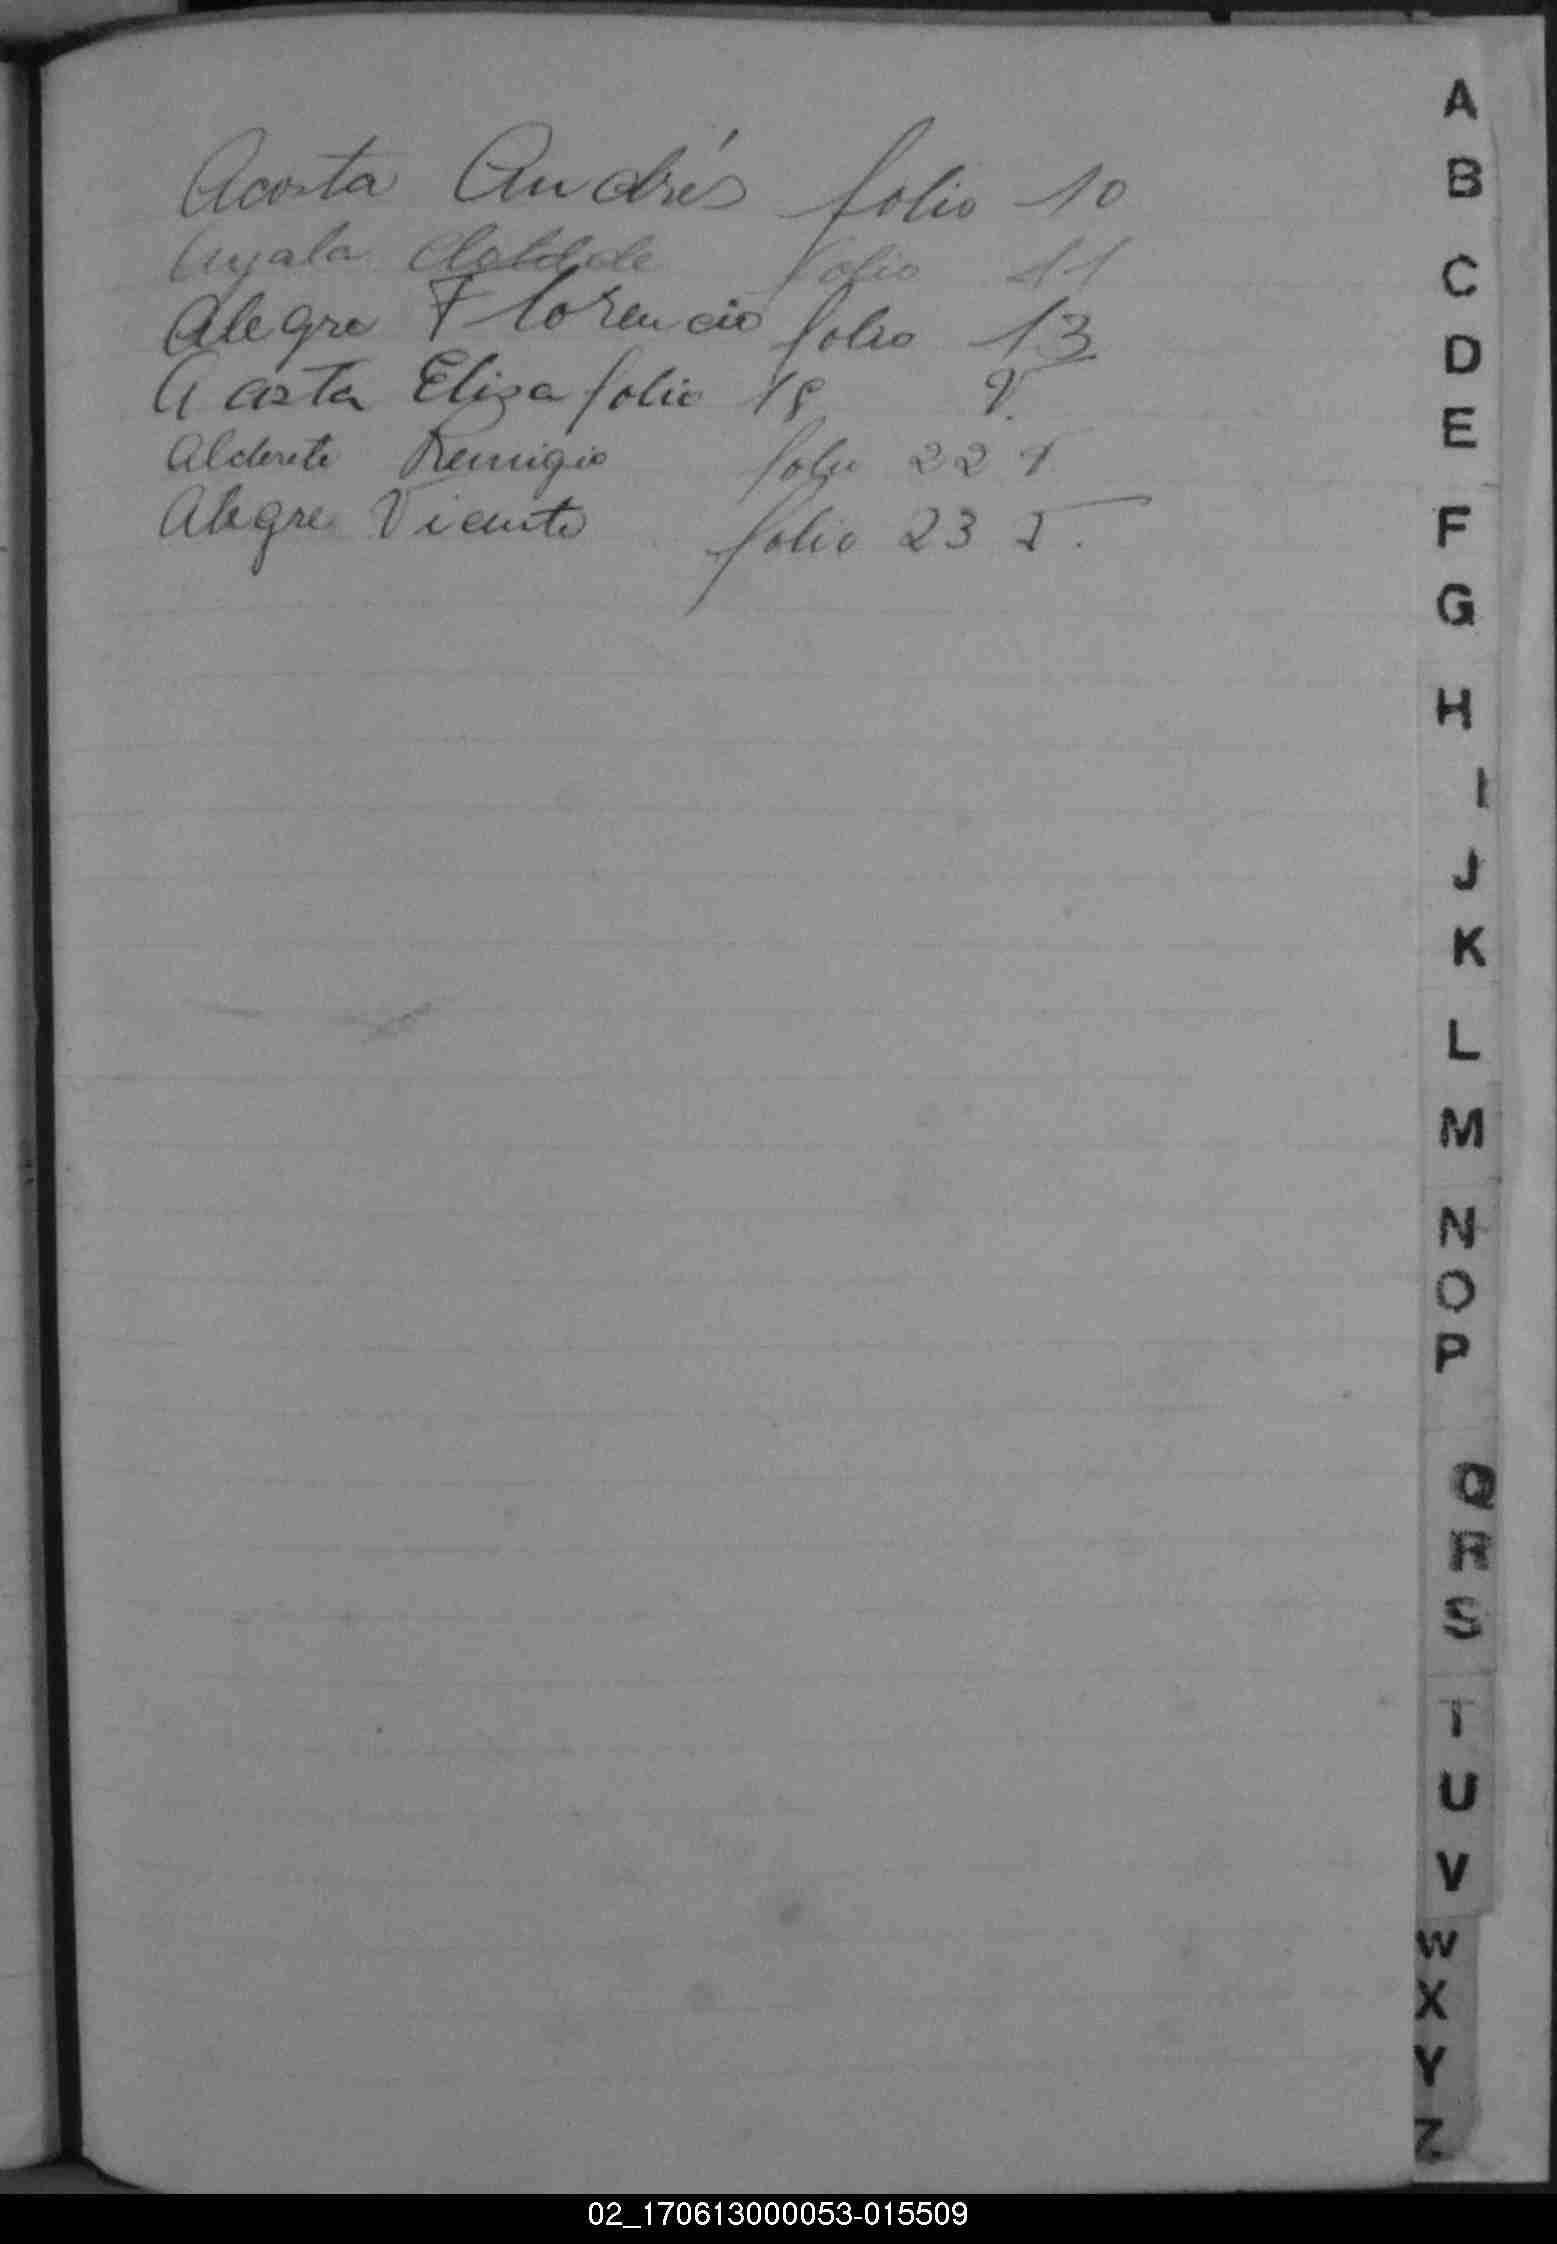 Acosta Andrés folio 10
Ayala Clotilde folio 11
Alegre Florencio folio 13
Acosta Elisa folio 18
Alderete Remigio folio 22
Alegre Vicente folio 23
A
B
C
D
E
F
G
H
I
J
K
L
M
N
O
P
Q
R
S
T
U
V
W
X
Y
Z
02_170613000053-015509